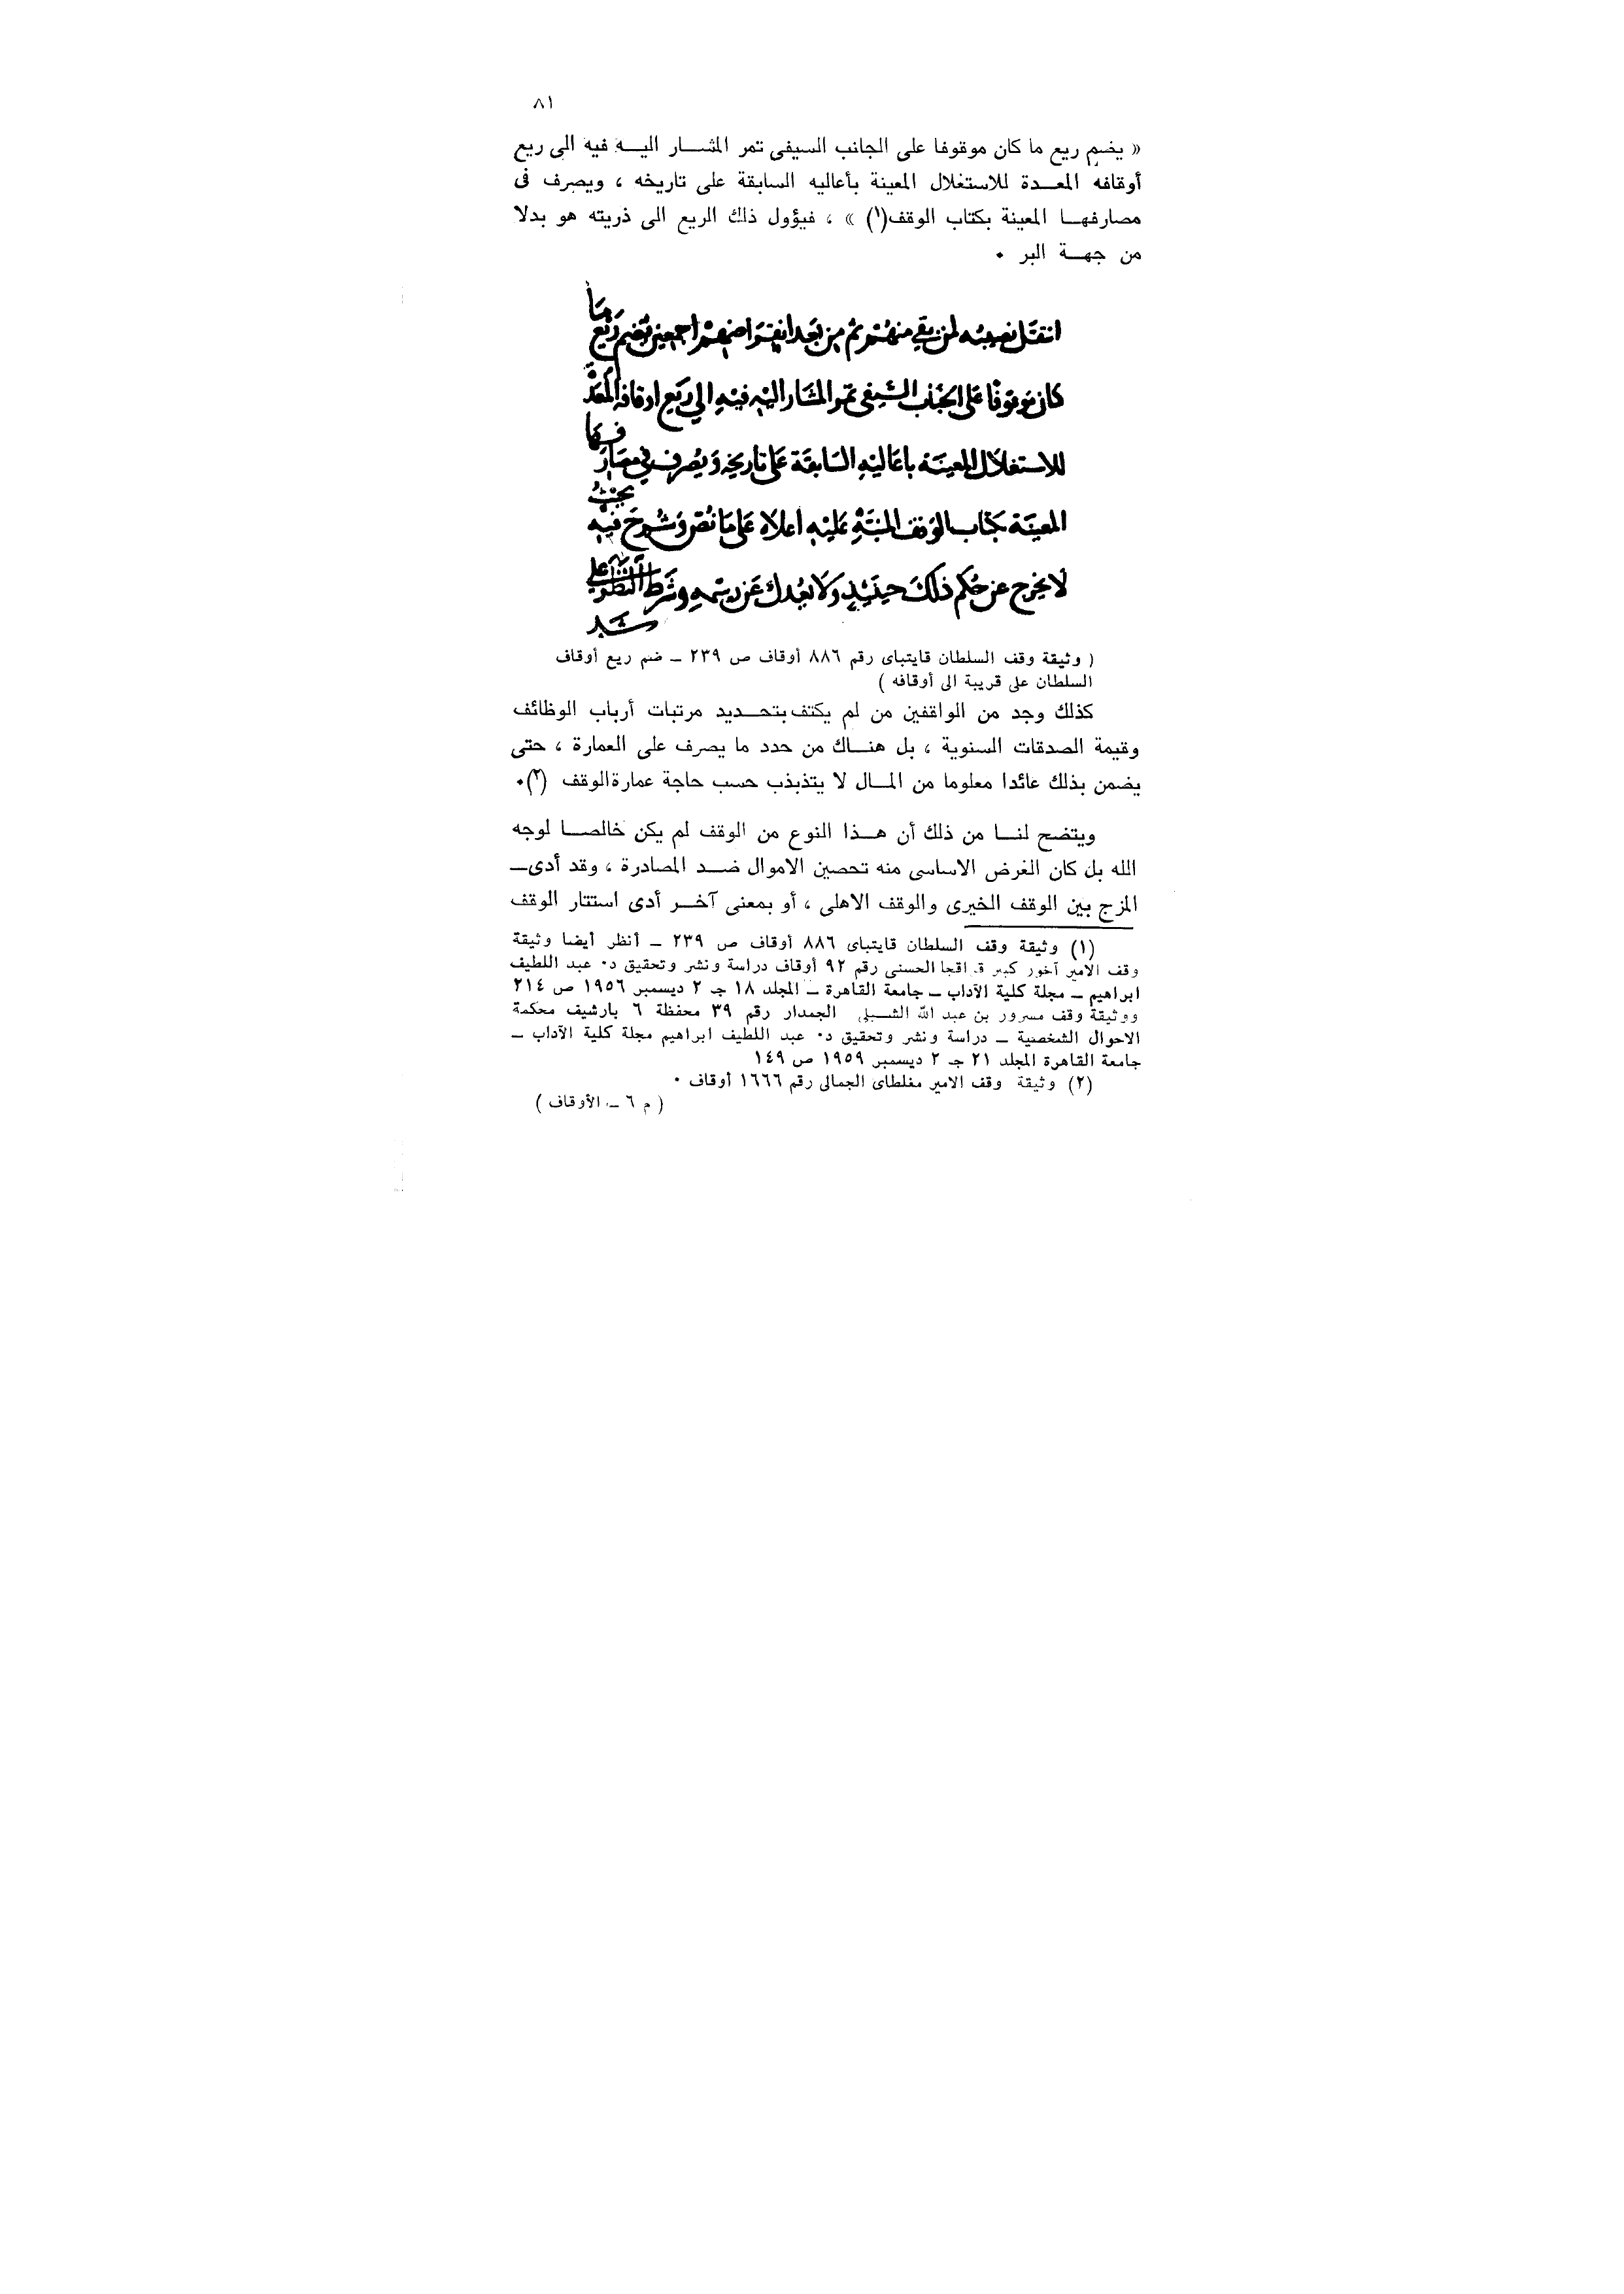 ٨١
« يضم ريع ما كان موقوفا على الجانب السيفى تمر المشار اليه فيه الى ريع
أوقافه المعدة للاستغلال المعينة بأعاليه السابقة على تاريخه ، ويصرف فى
مصارفها المعينة بكتاب الوقف(١) » ، فيؤول ذلك الريع الى ذريته هو بدلا
من جهة البر ٠
انتقل نصيبه لمن بقي منهم ثم من بعد انقراضهم اجمعين يضم ريع ما
كان موقوفا على الجناب السيفي تمر المشار اليه فيه الي ريع اوقافه المعدة
للاستغلال المعينة باعاليه السابقة على تاريخه ويصرف في مصارفها
المعينة بكتاب الوقف المنبه عليه اعلاه على ما نص وشرح فيه بحيث
لا يخرج عن حكم ذلك حينئذ ولا يعدل عن رسمه وشرط النظر على
( وثيقة وقف السلطان قايتباى رقم ٨٨٦ أوقاف ص ٢٣٩ ــ ضم ريع أوقاف
السلطان على قريبة الى أوقافه )
كذلك وجد من الواقفين من لم يكتف بتحديد مرتبات أرباب الوظائف
وقيمة الصدقات السنوية ، بل هناك من حدد ما يصرف على العمارة ، حتى
يضمن بذلك عائدا معلوما من المال لا يتذبذب حسب حاجة عمارة الوقف (٢)٠
ويتضح لنا من ذلك أن هذا النوع من الوقف لم يكن خالصا لوجه
الله بل كان الغرض الاساسى منه تحصين الاموال ضد المصادرة ، وقد أدى
المزج بين الوقف الخيرى والوقف الاهلى ، أو بمعنى آخر أدى استتار الوقف
(١) وثيقة وقف السلطان قايتباى ٨٨٦ أوقاف ص ٢٣٩ ــ أنظر أيضا وثيقة
وقف الامير آخور كبير قراقجا الحسنى رقم ٩٢ أوقاف دراسة ونشر وتحقيق د٠ عبد اللطيف
ابراهيم ــ مجلة كلية الآداب ــ جامعة القاهرة ــ المجلد ١٨ جـ ٢ ديسمبر ١٩٥٦ ص ٢١٤
ووثيقة وقف مسرور بن عبد الله الشبلى الجمدار رقم ٣٩ محفظة ٦ بارشيف محكمة
الاحوال الشخصية ــ دراسة ونشر وتحقيق د٠ عبد اللطيف ابراهيم مجلة كلية الآداب ــ
جامعة القاهرة المجلد ٢١ جـ ٢ ديسمبر ١٩٥٩ ص ١٤٩
(٢) وثيقة وقف الامير مغلطاى الجمالى رقم ١٦٦٦ أوقاف ٠
( م ٦ ــ الأوقاف )